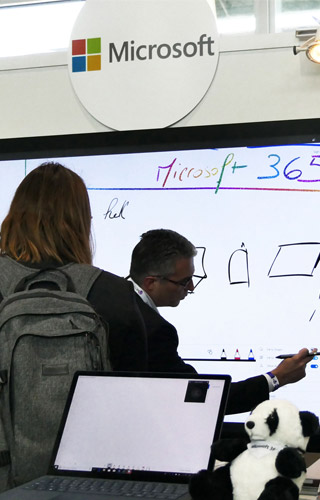 Microsoft
Microsoft 365
hell